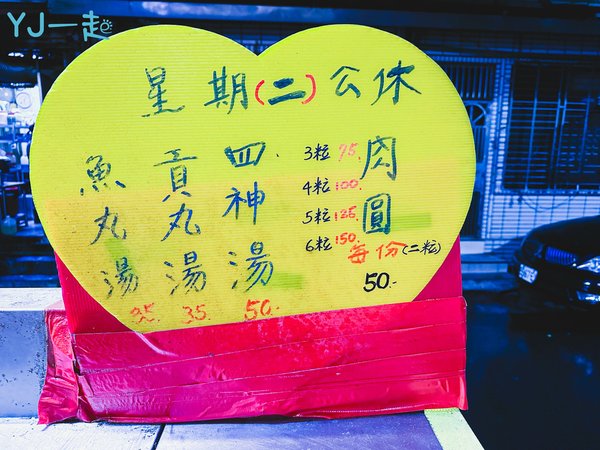 YJ一起
星期(二)公休
肉圓
3粒 75.
4粒 100.
5粒 125.
6粒 150.
每份(二粒)
50.-
四神湯
50.-
貢丸湯
35.
魚丸湯
35.